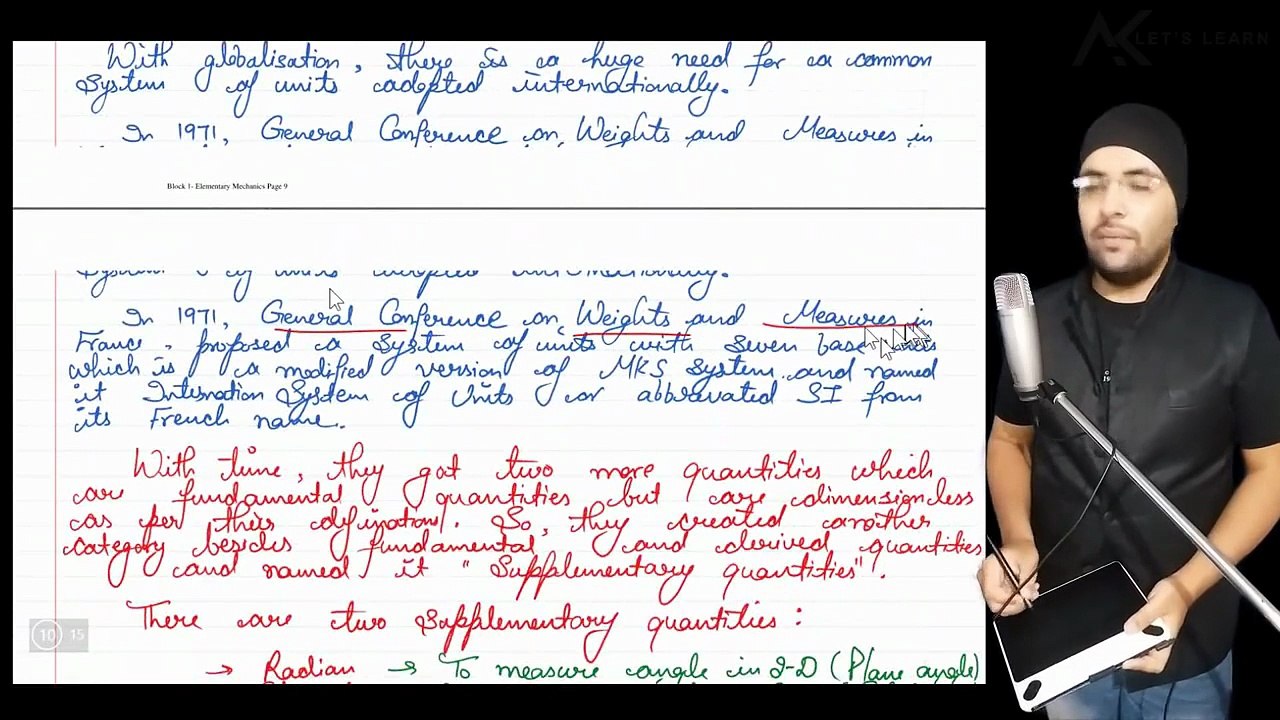 AK LET'S LEARN
With globalisation, there is a huge need for a common
system of units adopted internationally.
In 1971, General Conference on Weights and Measures in
Block 1- Elementary Mechanics Page 9
system of units adopted internationally.
In 1971, General Conference on Weights and Measures in
France, proposed a system of units with seven base
which is a modified version of MKS system and named
it Internation System of Units or abbravated SI from
its French name.
With time, they got two more quantities which
are fundamental quantities but are dimensionless
as per their definations. So, they created another
category besides fundamental and derived quantities
and named it "Supplementary quantities".
There are two Supplementary quantities:
10 15
→ Radian → To measure angle in 2-D (Plane angle)